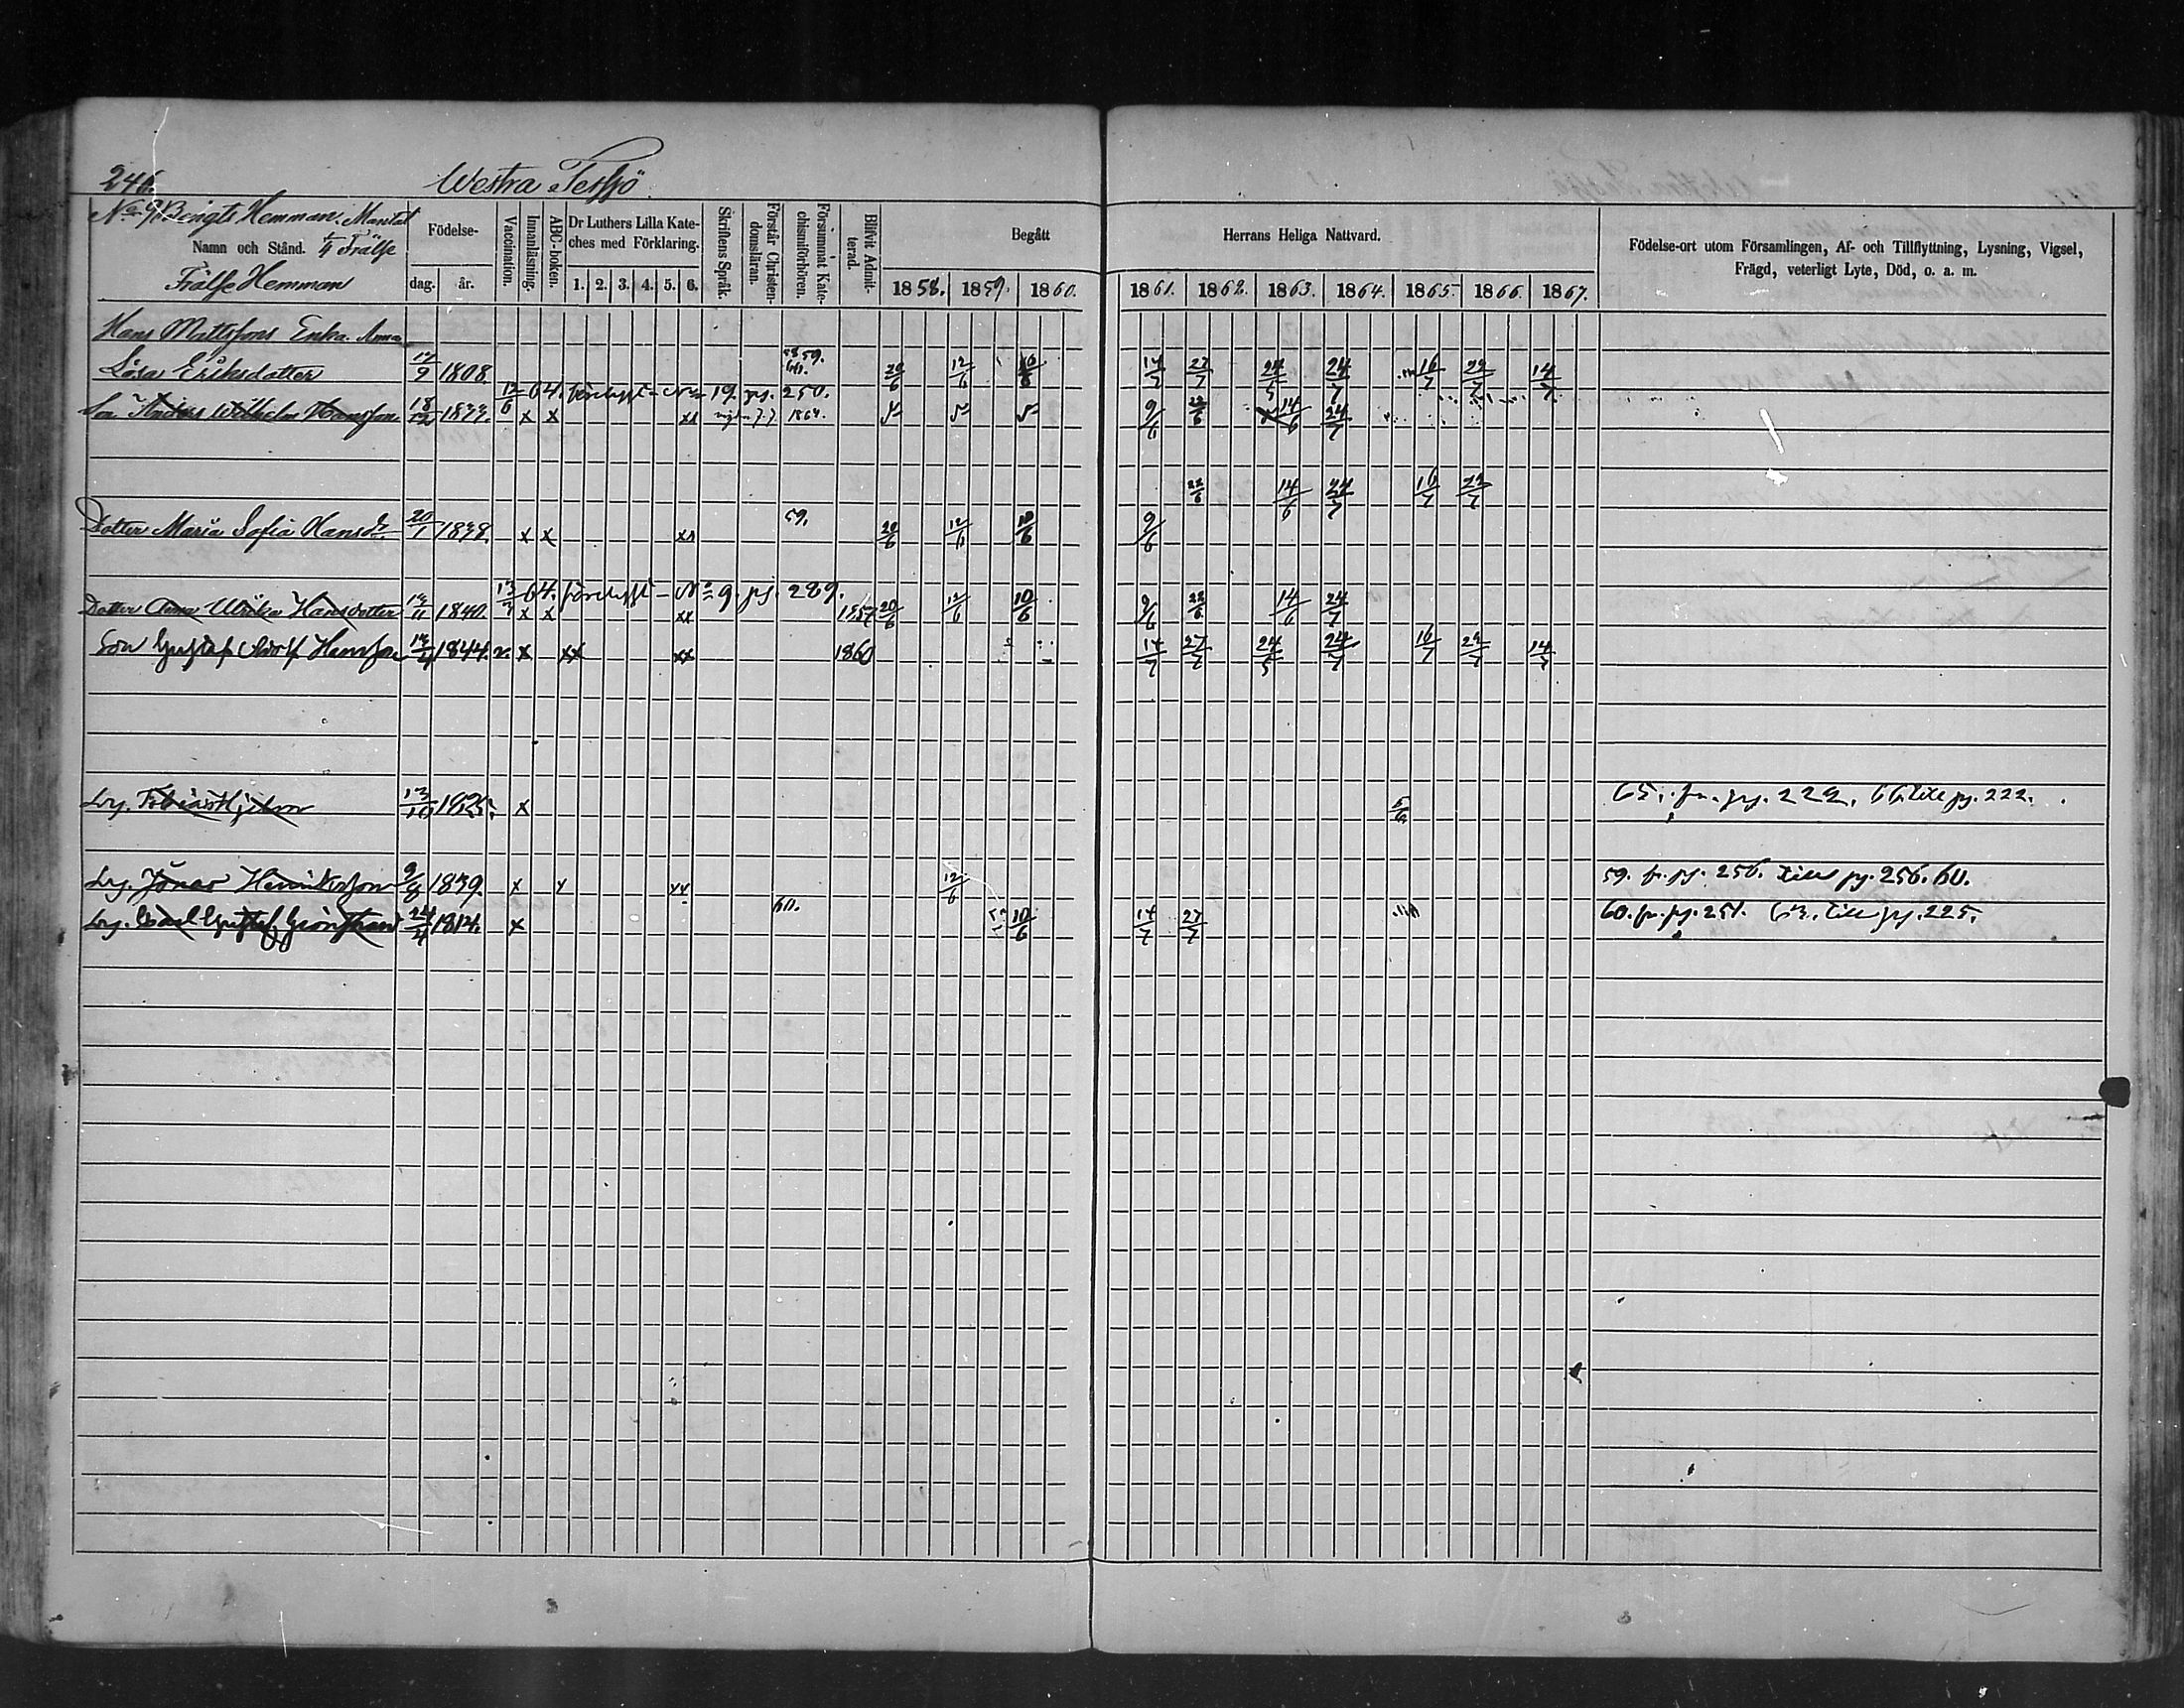 246.
Westra Tessjö
No 9. Bengts Hemman. Mantal
Namn och Stånd. 1/4 Frälse
Frälse Hemman
Födelse-
dag. år.
Vaccination.
Innanläsning.
ABC-boken.
Dr Luthers Lilla Kate-
ches med Förklaring.
1. 2. 3. 4. 5. 6.
Skriftens Språk.
Förstår Christen-
domsläran.
Försummat Kate-
chismiförhören.
Blifvit Admit-
terad.
Begått
1858. 1859. 1860.
Herrans Heliga Nattvard.
1861. 1862. 1863. 1864. 1865. 1866. 1867.
Födelse-ort utom Församlingen, Af- och Tillflyttning, Lysning, Vigsel,
Frägd, veterligt Lyte, Död, o. a. m.
Hans Mattssons Enka. Anna
Lisa Eriksdotter 17/9 1808. 20/6 12/6 10/6 14/7 27/7 24/5 24/7 16/7 22/7 14/7
12/6 64. förelyst No 19. pg. 250.
Son Anders Wilhelm Hansson 18/12 1833. x x xx 1864. 9/6 22/6 14/6 24/7
22/6 14/6 24/7 16/7 22/7
59.
Dotter Maria Sofia Hansdr. 20/1 1838. x x xx 20/6 12/6 10/6 9/6
13/3 64. förelyst No 9. pg. 289.
Dotter Anna Ulrika Hansdotter 13/11 1840. x x xx 1857 20/6 12/6 10/6 9/6 22/6 14/6 24/7
Son Gustaf Adolf Hansson 13/4 1844. v. x xx xx 1860 14/7 27/7 24/5 24/7 16/7 22/7 14/7
Drg. 13/10 1825. x 65. fr. pg. 222. 66. till pg. 222.
Drg. Jonas Henriksson 9/8 1839. x x xx 12/6 59. fr. pg. 256. till pg. 256. 60.
60.
Drg. Carl Gustaf Grönstrand 24/4 1814. x 10/6 14/7 27/7 60. fr. pg. 251. 63. till pg. 225.